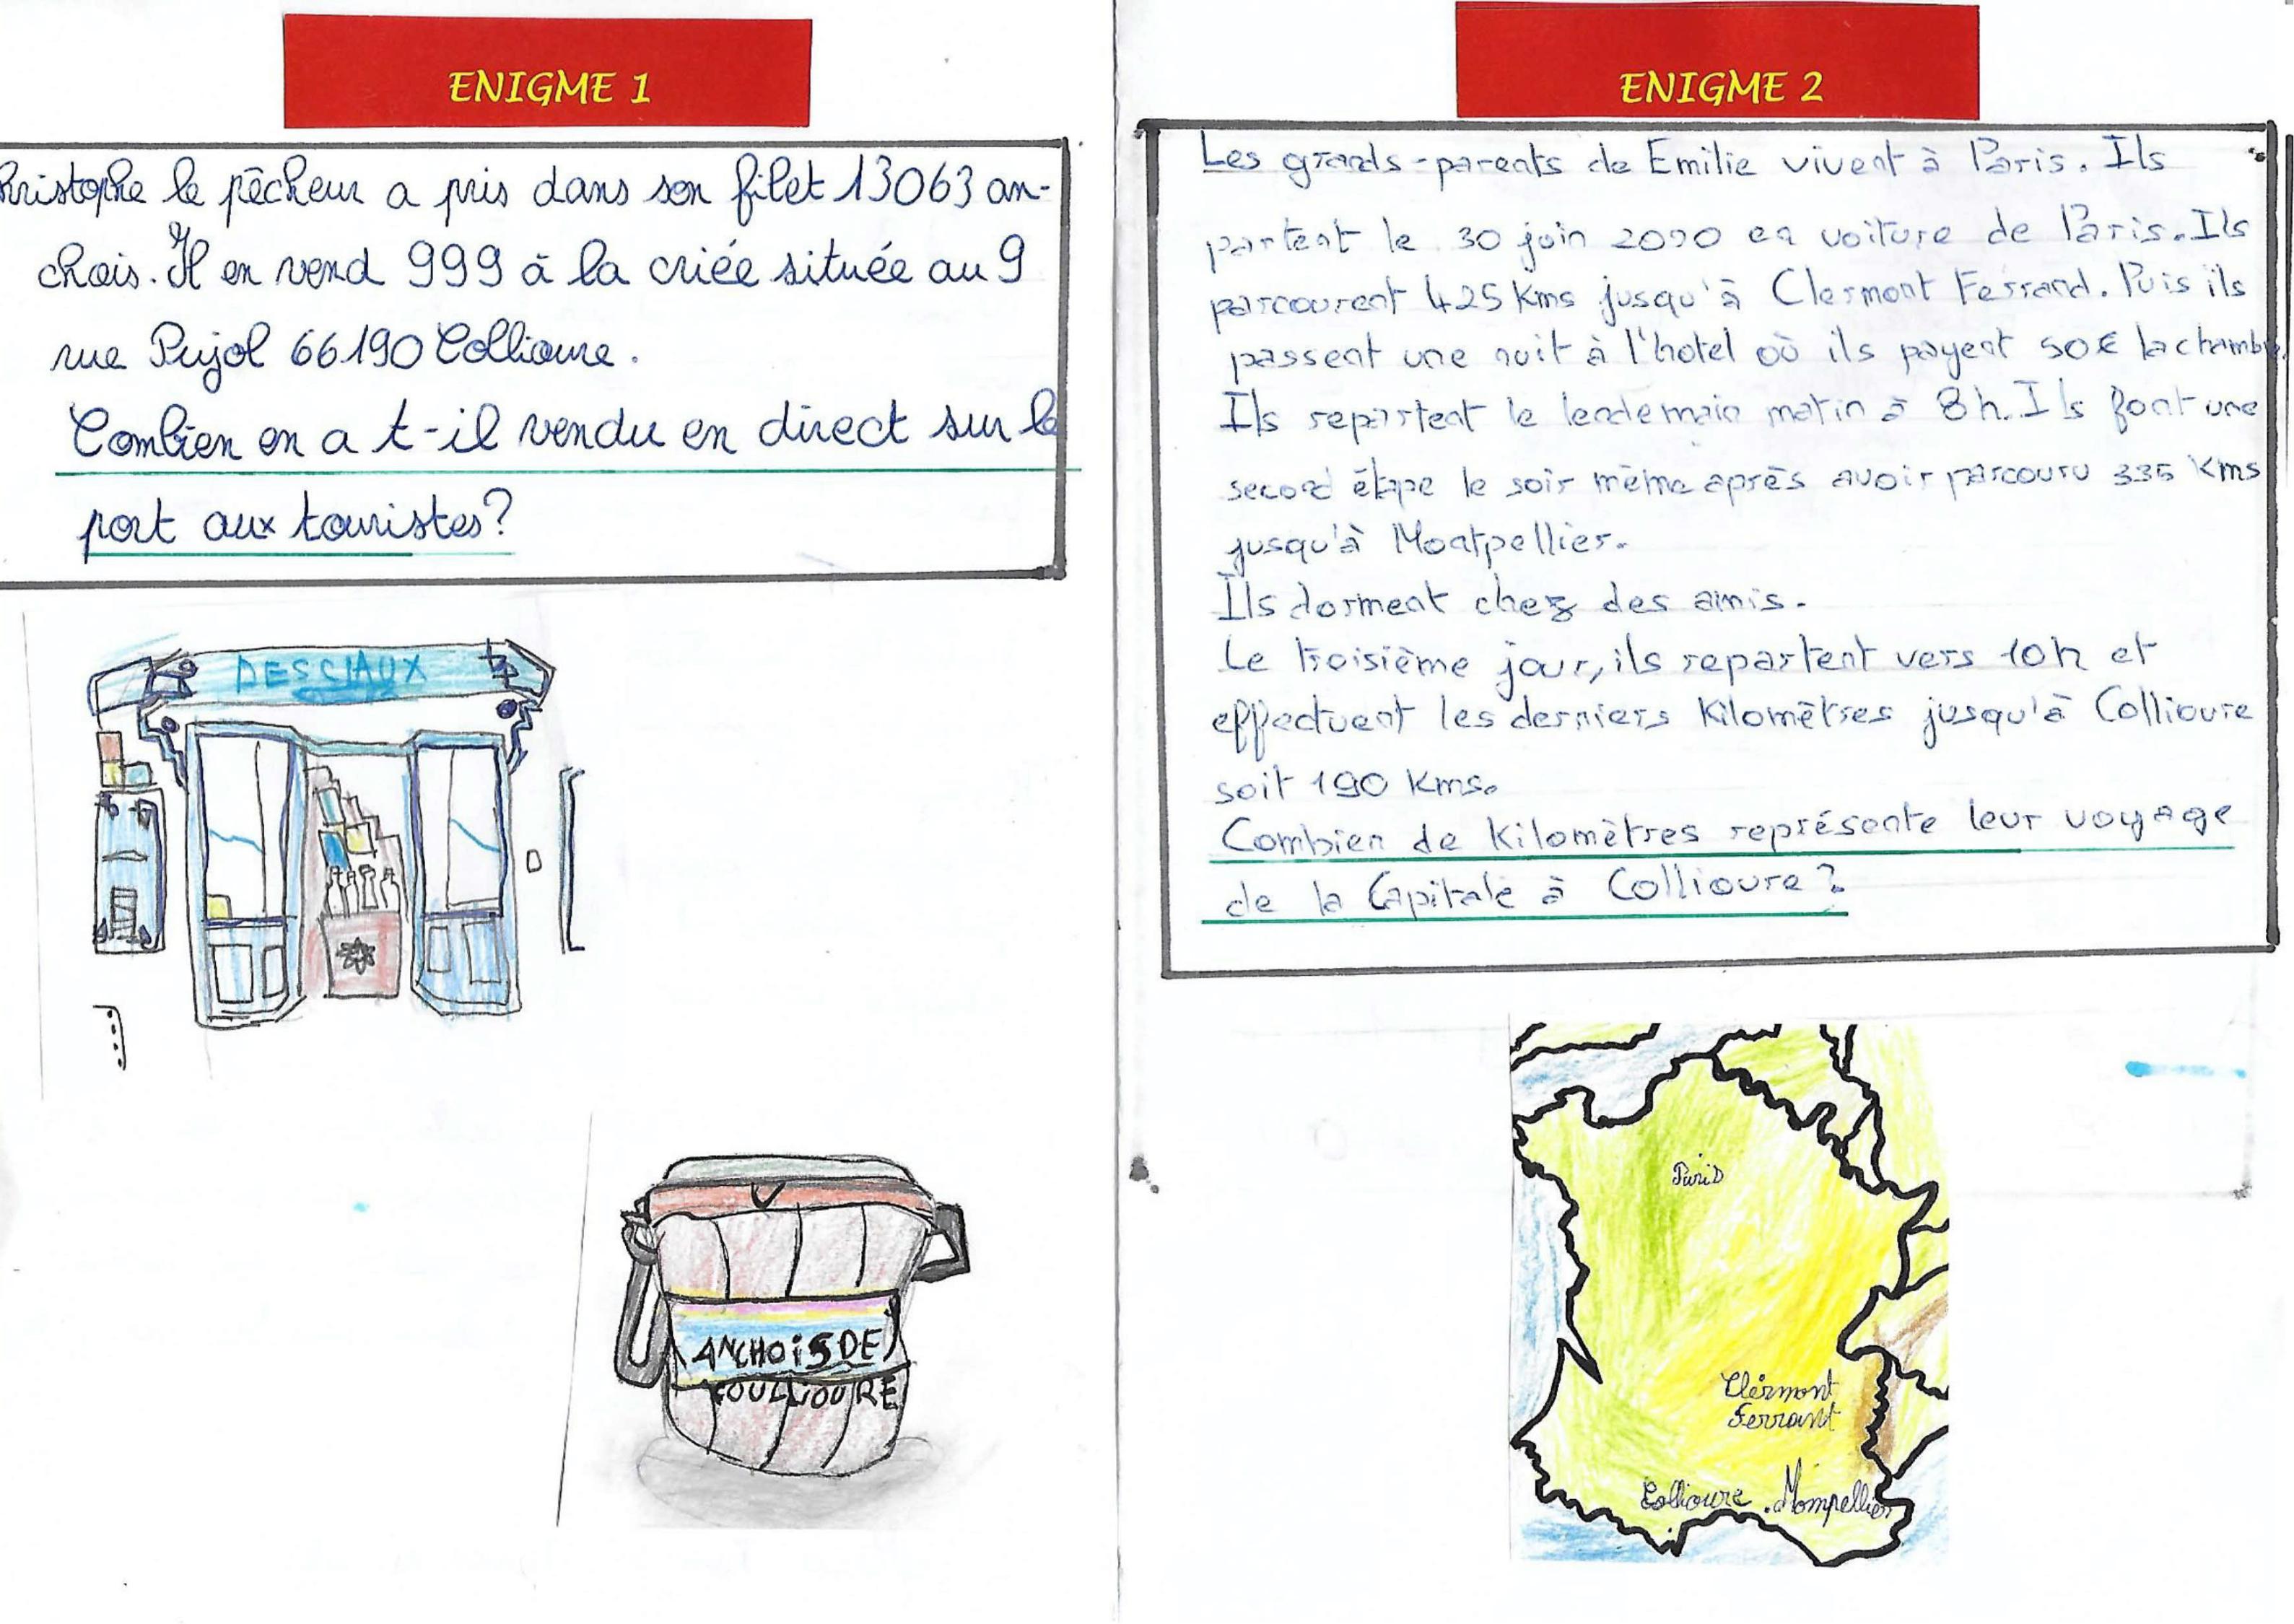 ENIGME 1
hristophe le pêcheur a pris dans son filet 13063 an-
chois. Il en vend 999 à la criée située au 9
rue Pujol 66190 Collioure.
Combien en a t-il vendu en direct sur le
port aux touristes?
DESCLAUX
ANCHOiS DE
COULLIOURE
ENIGME 2
Les grands-parents de Emilie vivent à Paris. Ils
partent le 30 juin 2020 en voiture de Paris. Ils
parcourent 425 Kms jusqu'à Clermont Ferrand. Puis ils
passent une nuit à l'hotel où ils payent 50€ la chambre.
Ils repartent le lendemain matin à 8h. Ils font une
second étape le soir même après avoir parcouru 335 Kms
jusqu'à Montpellier.
Ils dorment chez des amis.
Le troisième jour, ils repartent vers 10h et
effectuent les derniers Kilomètres jusqu'à Collioure
soit 190 Kms.
Combien de Kilomètres représente leur voyage
de la Capitale à Collioure?
Paris
Clérmont
Ferrant
Collioure . Mompellier